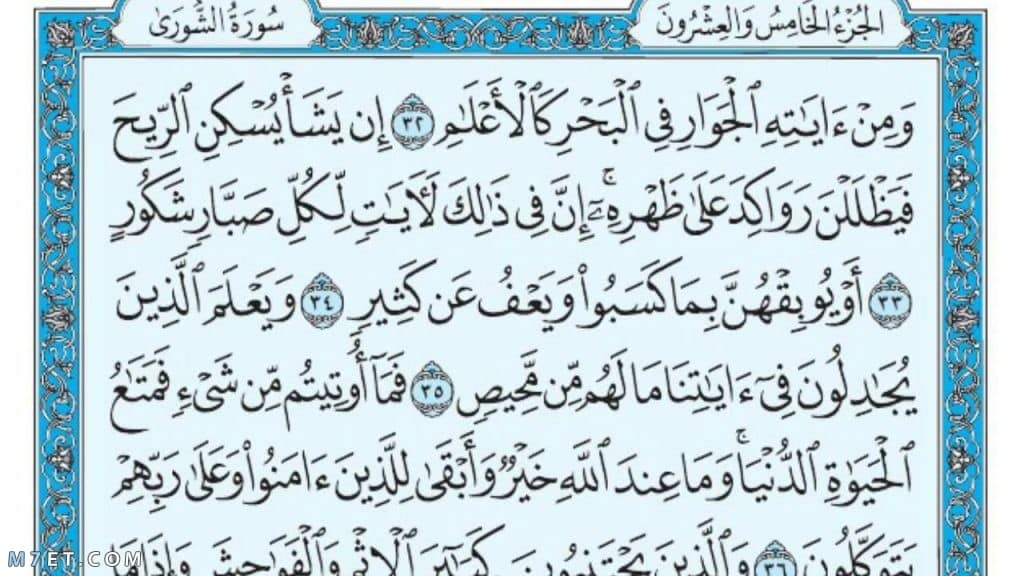 الجُزْءُ الخَامِسُ وَالعِشْرُونَ
سُورَةُ الشُّورَىٰ
وَمِنْ ءَايَٰتِهِ ٱلْجَوَارِ فِى ٱلْبَحْرِ كَٱلْأَعْلَٰمِ ٣٢ إِن يَشَأْ يُسْكِنِ ٱلرِّيحَ
فَيَظْلَلْنَ رَوَاكِدَ عَلَىٰ ظَهْرِهِۦٓ ۚ إِنَّ فِى ذَٰلِكَ لَـَٔايَٰتٍ لِّكُلِّ صَبَّارٍ شَكُورٍ
٣٣ أَوْ يُوبِقْهُنَّ بِمَا كَسَبُوا۟ وَيَعْفُ عَن كَثِيرٍ ٣٤ وَيَعْلَمَ ٱلَّذِينَ
يُجَٰدِلُونَ فِىٓ ءَايَٰتِنَا مَا لَهُم مِّن مَّحِيصٍ ٣٥ فَمَآ أُوتِيتُم مِّن شَىْءٍ فَمَتَٰعُ
ٱلْحَيَوٰةِ ٱلدُّنْيَا ۚ وَمَا عِندَ ٱللَّهِ خَيْرٌ وَأَبْقَىٰ لِلَّذِينَ ءَامَنُوا۟ وَعَلَىٰ رَبِّهِمْ
يَتَوَكَّلُونَ ٣٦ وَٱلَّذِينَ يَجْتَنِبُونَ كَبَٰٓئِرَ ٱلْإِثْمِ وَٱلْفَوَٰحِشَ وَإِذَا مَا
M7ET.COM